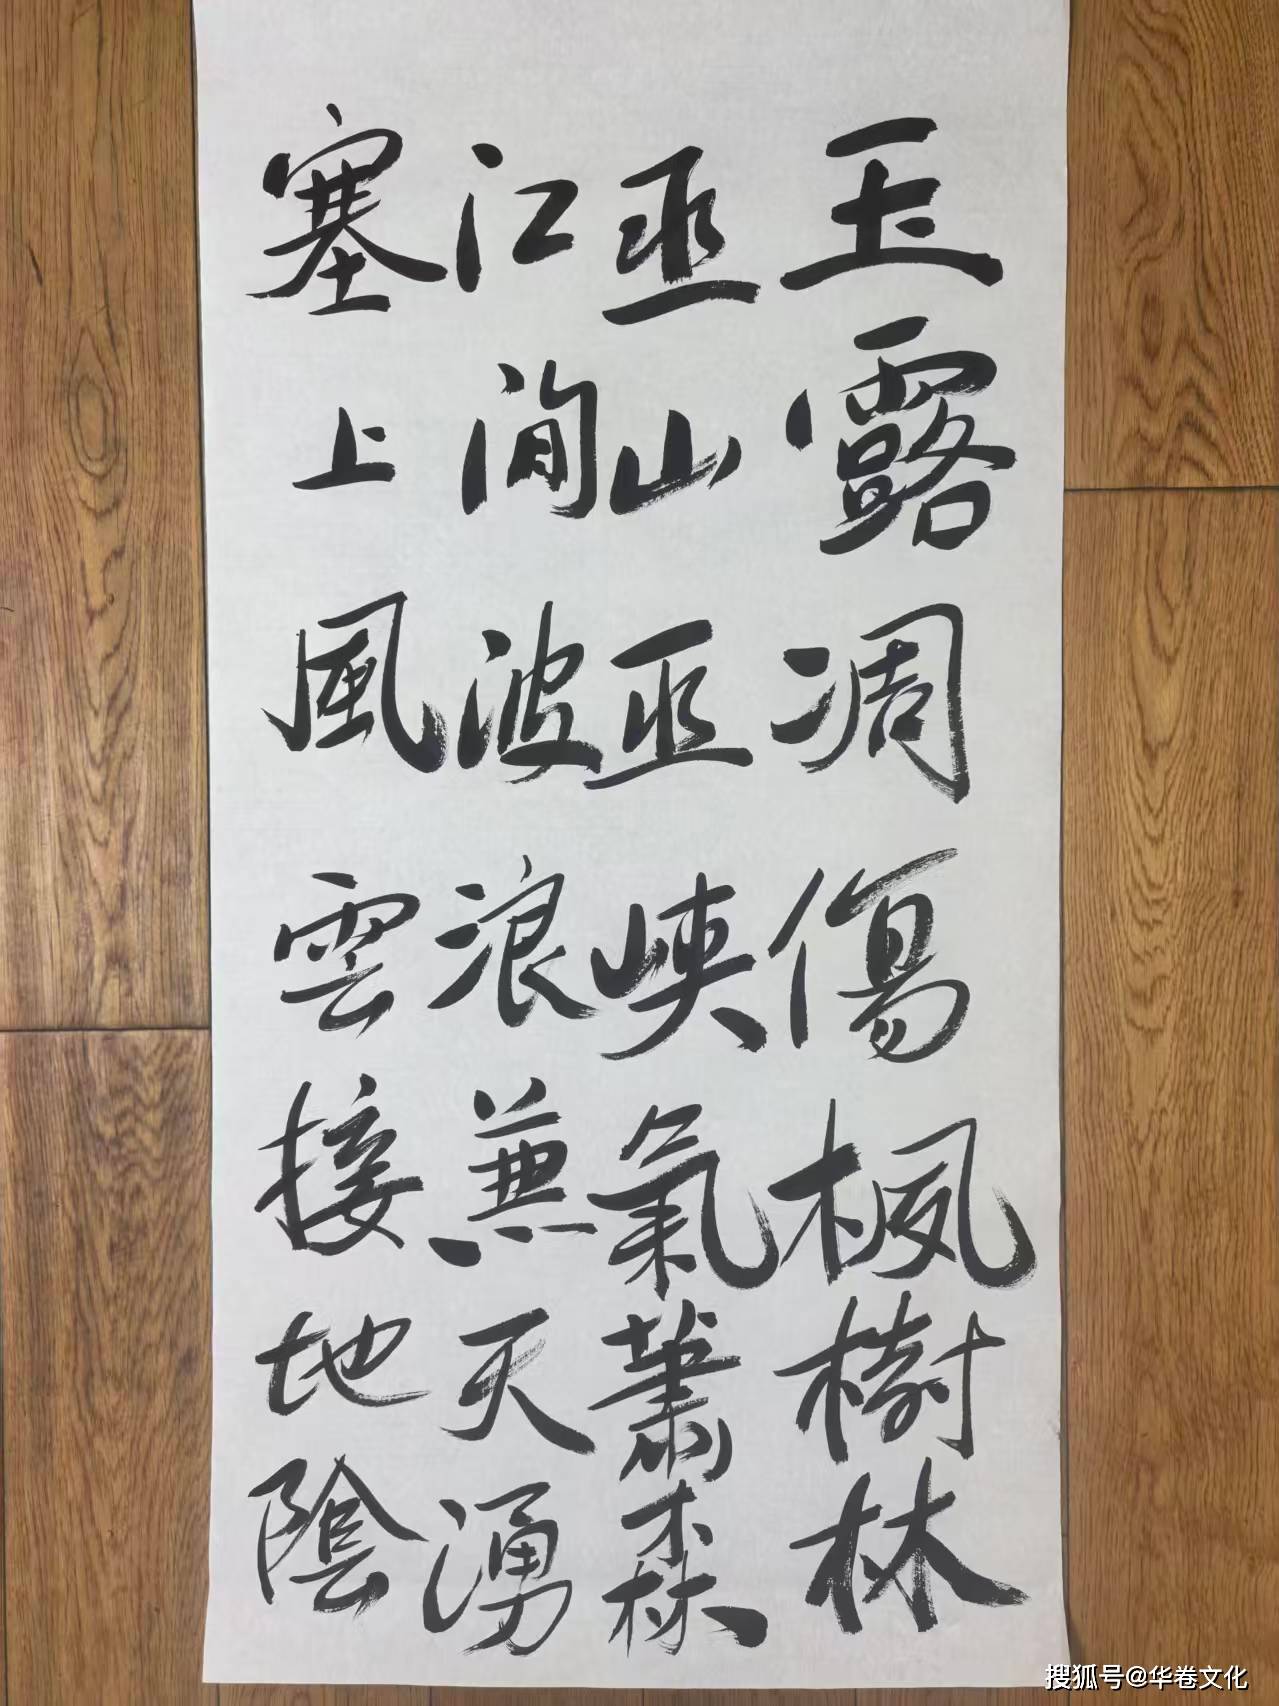 玉露凋傷楓樹林
巫山巫峽氣蕭森
江間波浪兼天湧
塞上風雲接地陰
搜狐号@华卷文化